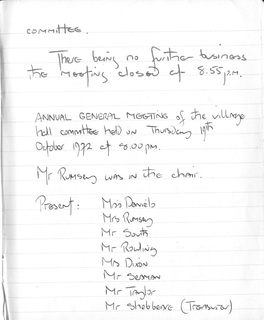 COMMITTEE.
There being no further business
the meeting closed at 8.55 p.m.
ANNUAL GENERAL MEETING of the village
hall committee held on Thursday 19th
October 1972 at 8.00 p.m.
Mr Rumsey was in the chair.
Present: Miss Daniels
Mrs Rumsey
Mr South
Mr Rowling
Mrs Dixon
Mr Seaman
Mr Taylor
Mr (Treasurer)